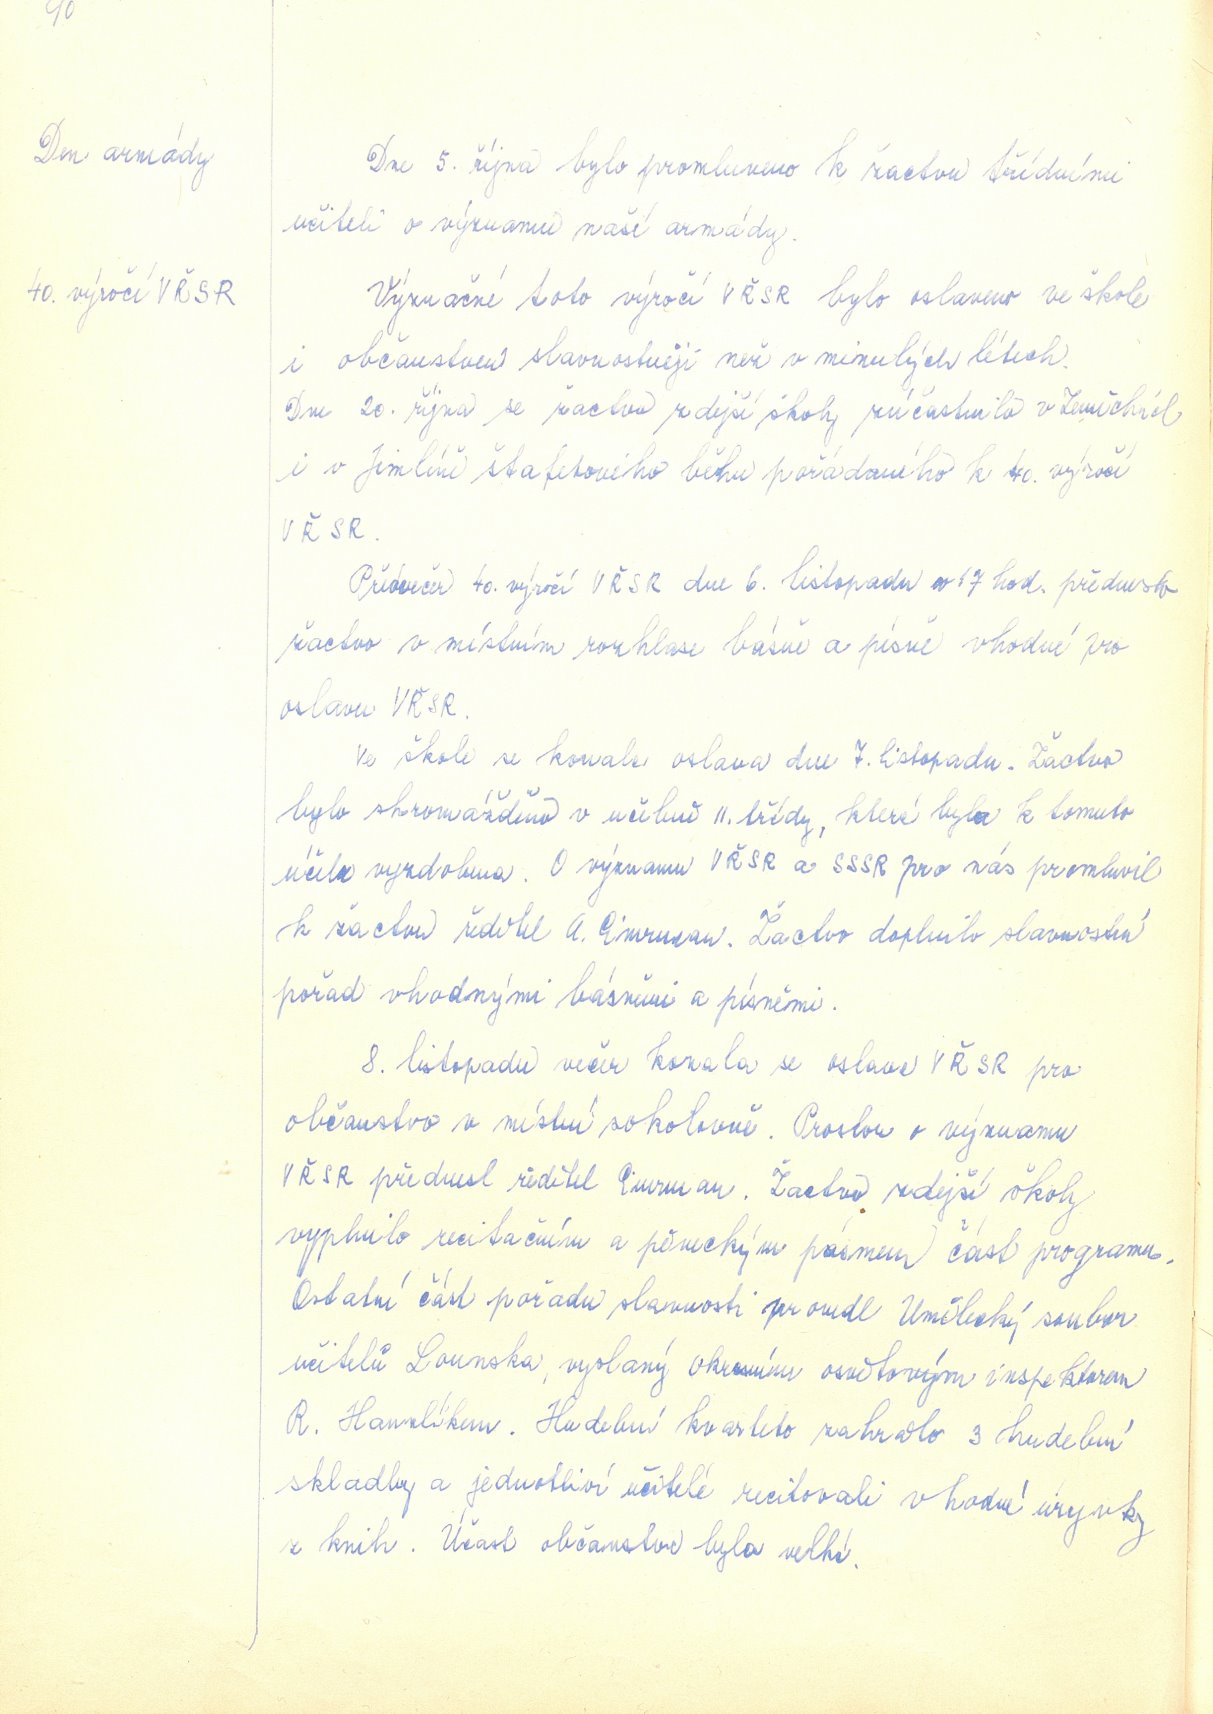 90
Den armády
Dne 5. října bylo promluveno k žactvu třídními
učiteli o významu naší armády.
40. výročí VŘSR
Význačné toto výročí VŘSR bylo oslaveno ve škole
i občanstvem slavnostněji než v minulých létech.
Dne 20. října se žactvo zdejší školy zúčastnilo v Zeměchách
i v Jimlíně štafetového běhu pořádaného k 40. výročí
VŘSR.
Předvečer 40. výročí VŘSR dne 6. listopadu v 17 hod. předneslo
žactvo v místním rozhlase básně a písně vhodné pro
oslavu VŘSR.
Ve škole se konala oslava dne 7. listopadu. Žactvo
bylo shromážděno v učebně II. třídy, která byla k tomuto
účelu vyzdobena. O významu VŘSR a SSSR pro nás promluvil
k žactvu ředitel A. Žactvo doplnilo slavnostní
pořad vhodnými básněmi a písněmi.
8. listopadu večer konala se oslava VŘSR pro
občanstvo v místní sokolovně. Proslov o významu
VŘSR přednesl ředitel Žactvo zdejší školy
vyplnilo recitačním a pěveckým pásmem část programu.
Ostatní část pořadu slavnosti provedl Umělecký soubor
učitelů Lounska, vyslaný okresním osvětovým inspektorem
R. Hanzlíkem. Hudební kvarteto zahrálo 3 hudební
skladby a jednotliví učitelé recitovali vhodné úryvky
z knih. Účast občanstva byla velká.